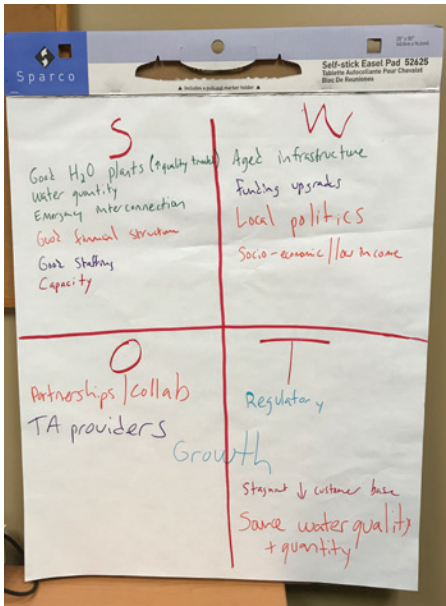 Sparco
Self-stick Easel Pad 52625
Tablette Autocollante Pour Chevalet
Bloc De Reuniones
S
Good H2O plants (↑quality treated)
Water quantity
Emergency interconnection
Good financial structure
Good Staffing
Capacity
W
Aged infrastructure
Funding upgrades
Local politics
Socio-economic/low income
O
Partnerships/collab
TA providers
Growth
T
Regulatory
Stagnant ↓ customer base
Source water quality
+ quantity